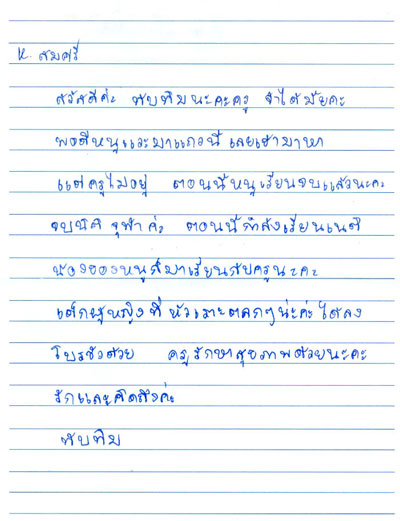 ห. สมศรี
สวัสดีค่ะ ทับทิมนะคะครู จำได้มัยคะ
พอดีหนูแวะมาแถวนี้ เลยเข้ามาหา
แต่ครูไม่อยู่ ตอนนี้หนูเรียนจบแล้วนะคะ
จบนิติ จุฬา ค่ะ ตอนนี้กำลังเรียนเนติ
น้องของหนูก็มาเรียนกับครูนะคะ
เด็กผู้หญิงที่หัวเราะตลกๆน่ะค่ะ ได้ลง
โบรชัวด้วย ครูรักษาสุขภาพด้วยนะคะ
รักและคิดถึงค่ะ
ทับทิม